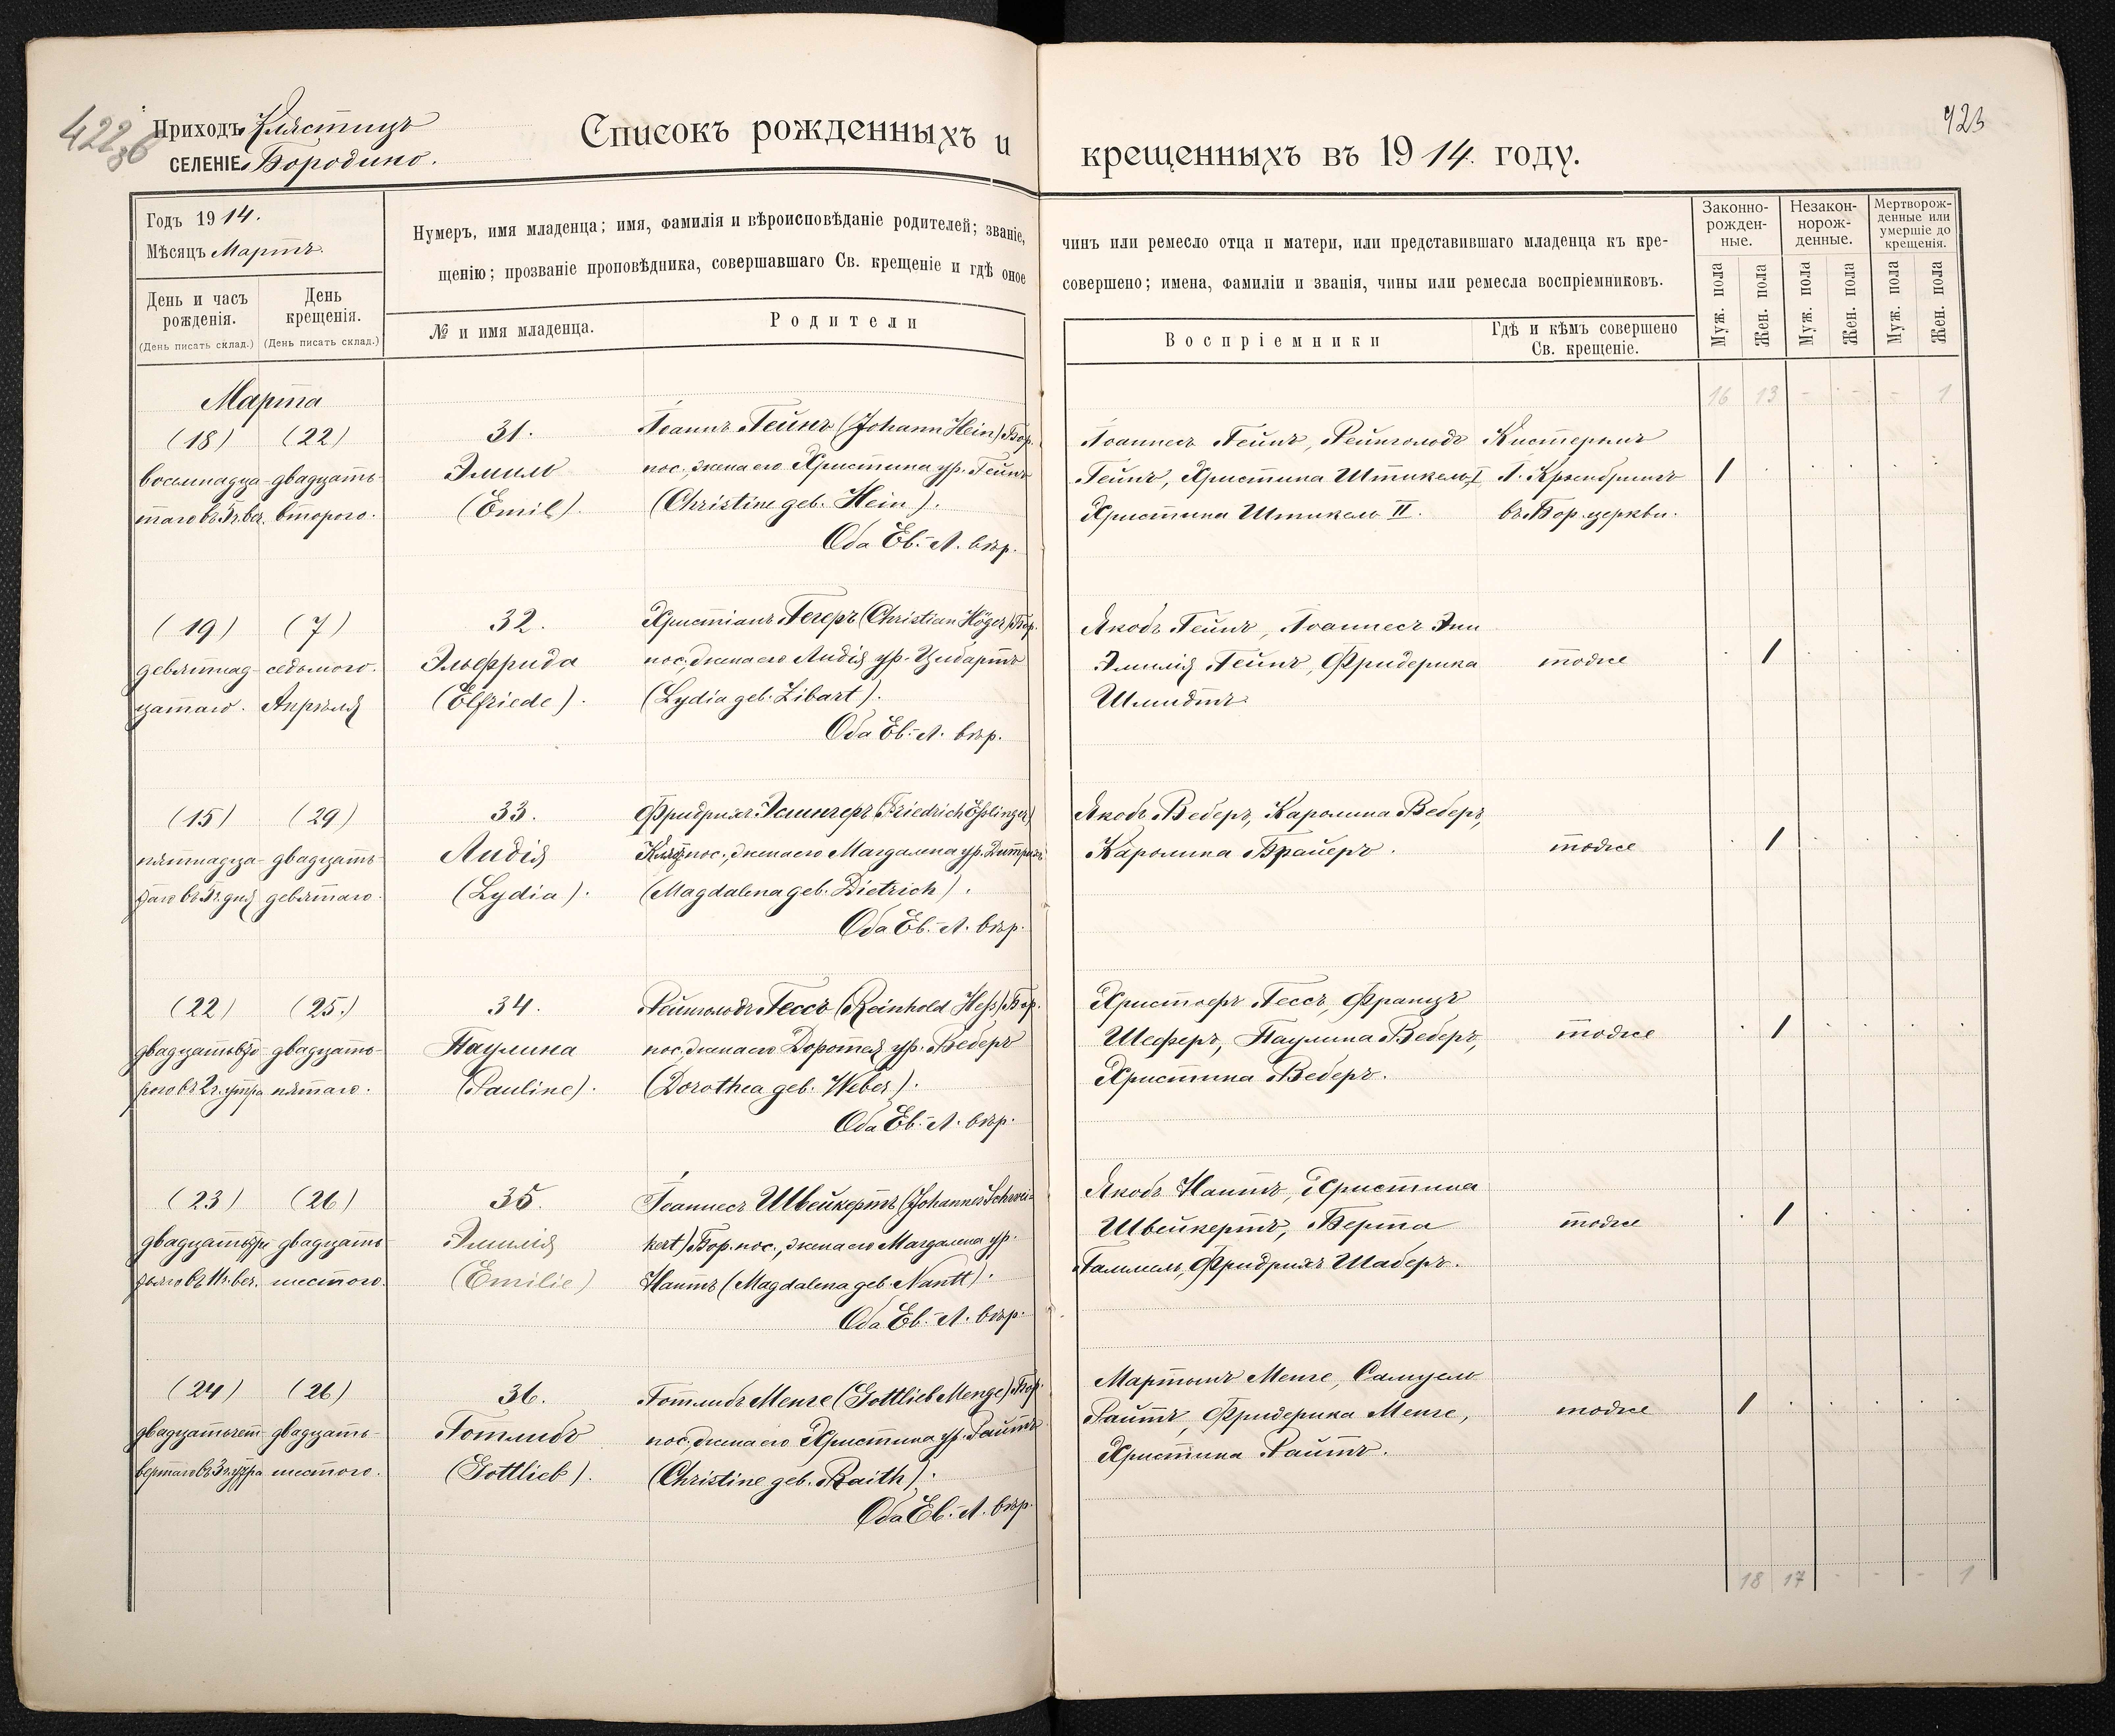 422об
Приходъ Клястицъ
СЕЛЕНІЕ Бородино.
Списокъ рожденныхъ и
Годъ 1914.
Мѣсяцъ Мартъ.
День и часъ рожденія.
(День писать склад.)
День крещенія.
(День писать склад.)
Нумеръ, имя младенца; имя, фамилія и вѣроисповѣданіе родителей; званіе,
щенію; прозваніе проповѣдника, совершавшаго Св. крещеніе и гдѣ оное
№ и имя младенца.
Родители
Марта
(18) (22)
восемнадца- двадцать-
таго въ 5 ч. веч. второго.
31.
Эмиль
(Emil).
Іоаннъ Гейнъ (Johann Hein) Бор.
пос., жена его Христина ур. Гейнъ
(Christine geb. Hein).
Оба Ев.-Л. вѣр.
(19) (7)
девятнад- седьмого.
цатаго. Апрѣля
32.
Эльфрида
(Elfriede).
Христіанъ Гегеръ (Christian Höger) Бор.
пос., жена его Лидія ур. Цибартъ
(Lydia geb. Zibart).
Оба Ев.-Л. вѣр.
(15) (29)
пятнадца- двадцать-
таго въ дня девятаго.
33.
Лидія
(Lydia).
Фридрихъ Эслингеръ (Friedrich Eßlinger)
Кляст. пос., жена его Магдалена ур. Дитрихъ
(Magdalena geb. Dietrich).
Оба Ев.-Л. вѣр.
(22) (25.)
двадцать вто- двадцать-
рого въ 2 ч. утра пятаго.
34.
Паулина
(Pauline).
Рейнгольдъ Гессъ (Reinhold Heß) Бор.
пос., жена его Доротея ур. Веберъ
(Dorothea geb. Weber).
Оба Ев.-Л. вѣр.
(23) (26)
двадцать тре- двадцать
тьяго въ 11 ч. веч. шестого.
35.
Эмилія
(Emilie)
Іоаннесъ Швейкертъ (Johannes Schwei-
kert) Бор. пос., жена его Магдалена ур.
Нантъ (Magdalena geb. Nantt).
Оба Ев.-Л. вѣр.
(24) (26)
двадцать чет- двадцать-
вертаго въ 3 ч. утра шестого.
36.
Готлибъ
(Gottlieb).
Готлибъ Менге (Gottlieb Menge) Бор.
пос., жена его Христина ур. Райтъ
(Christine geb. Raith).
Оба Ев.-Л. вѣр.
423
крещенныхъ въ 1914. году.
чинъ или ремесло отца и матери, или представившаго младенца къ кре-
совершено; имена, фамиліи и званія, чины или ремесла воспріемниковъ.
Воспріемники
Гдѣ и кѣмъ совершено
Св. крещеніе.
Законно-
рожден-
ные.
Незакон-
норож-
денные.
Мертворож-
денные или
умершіе до
крещенія.
Муж. пола
Жен. пола
Муж. пола
Жен. пола
Муж. пола
Жен. пола
16 13 - - - 1
Іоаннесъ Гейнъ, Рейнгольдъ
Гейнъ, Христина Штикель I
Христина Штикель II.
Кистеръ
въ Бор. церкви.
1
Якобъ Гейнъ, Іоаннесъ
Эмилія Гейнъ, Фридерика
Шмидтъ
тоже
1
Якобъ Веберъ, Каролина Веберъ,
Каролина Брайеръ.
тоже
1
Христофъ Гессъ, Францъ
Шеферъ, Паулина Веберъ,
Христина Веберъ.
тоже
1
Якобъ Нантъ, Христина
Швейкертъ, Берта
Гаммель, Фридрихъ Шаберъ.
тоже
1
Мартынъ Менге, Самуель
Райтъ, Фридерика Менге,
Христина Райтъ.
тоже
1
18 17 - - - 1